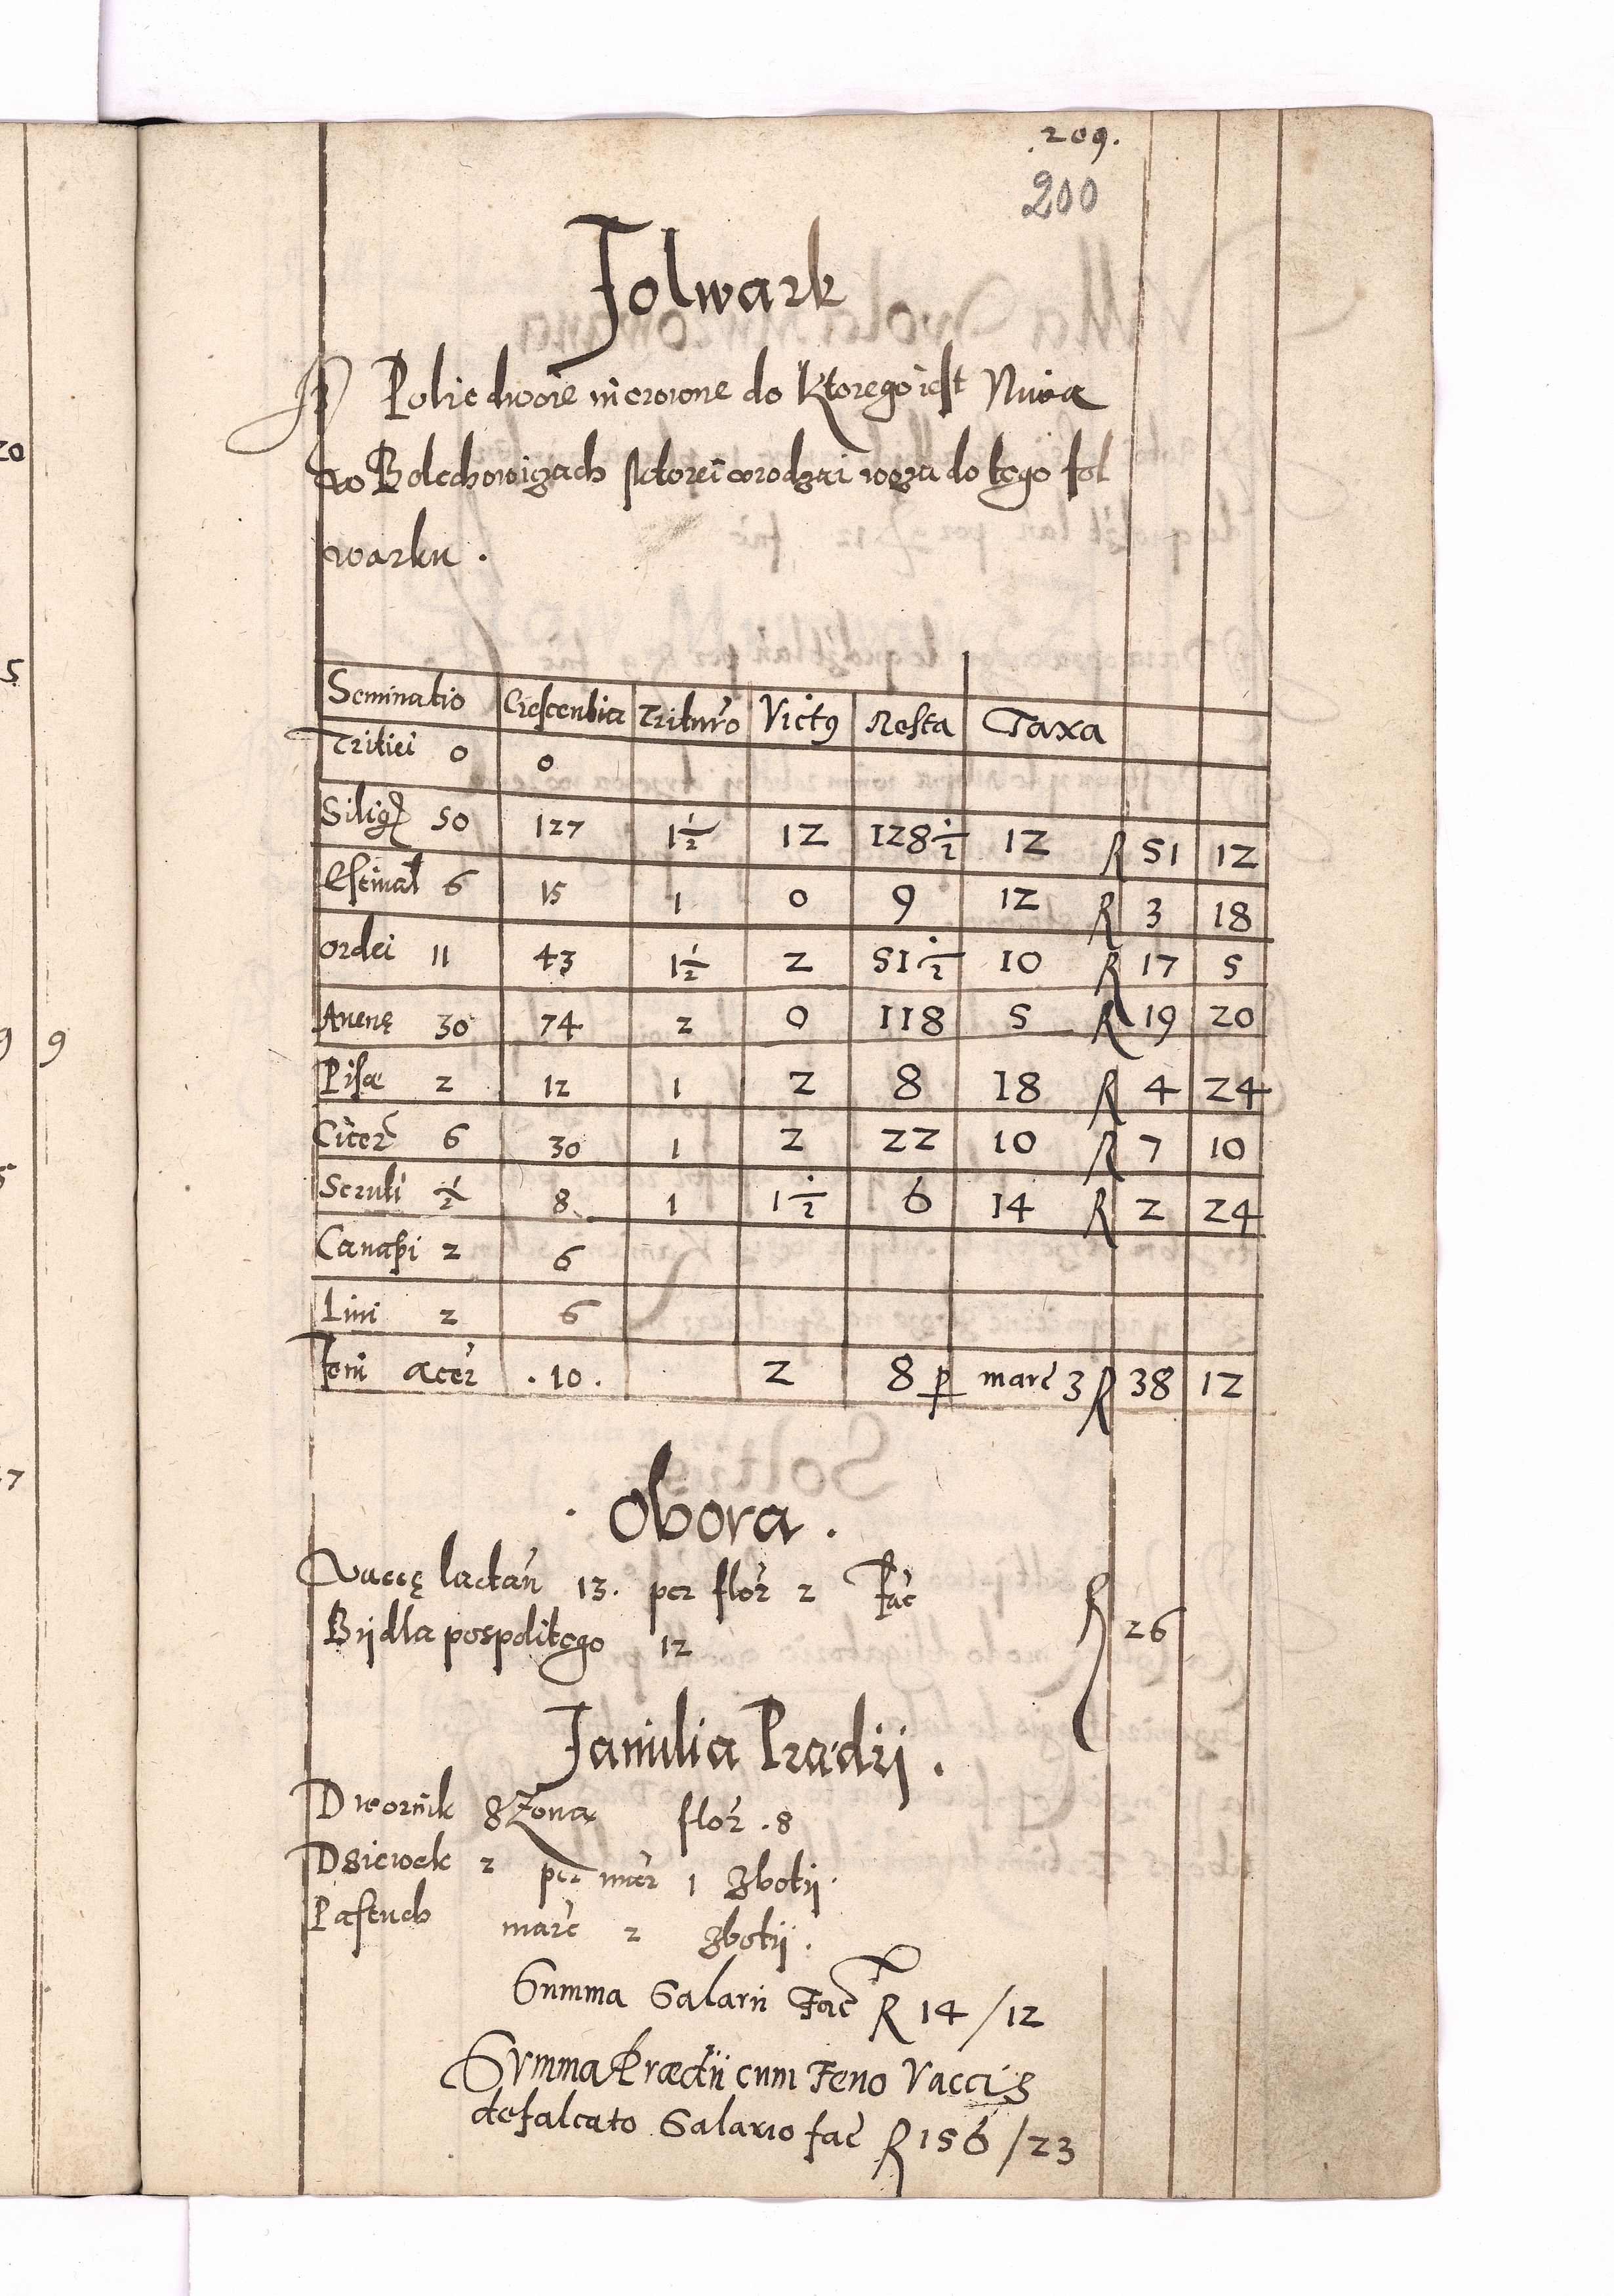 209.
200
Folwark
Polie dwoie nierowne do ktorego iest Niwa
w Bolechowiczach s ktorei urodzai wozą do tego fol
warku .
Seminatio Crescentia Tritur̃o Vict9 Resta Taxa
Tritici 0 0
Silig̃ 50 127 1½ 12 128½ 12 R 51 12
Estival 6 15 1 0 9 12 R 3 18
ordei 11 43 1½ 2 51½ 10 R 17 5
Auenę 30 74 2 0 118 5 R 19 20
Pisæ 2 12 1 2 8 18 R 4 24
Citer̃ 6 30 1 2 22 10 R 7 10
Seruli ½ 8 1 1½ 6 14 R 2 24
Canapi 2 6
Lini 2 6
Feni acer̃ . 10 . 2 8 p marc̃ 3 R 38 12
. Obora .
Vaccę lactañ 13. per flor̃ 2 Fac̃
Bydla pospolitego 12
R 26
Familia Prædij .
Dwornik s Zoną flor̃ . 8
Dziewek 2 per mar̃ 1 zbotij .
Pastuch marc̃ 2 zbotij .
Summa Salarii Fac̃ R 14 / 12
Summa Prædii cum Feno Vaccis
defalcato Salario fac̃ R 156 / 23
20
5
9 9
5
7